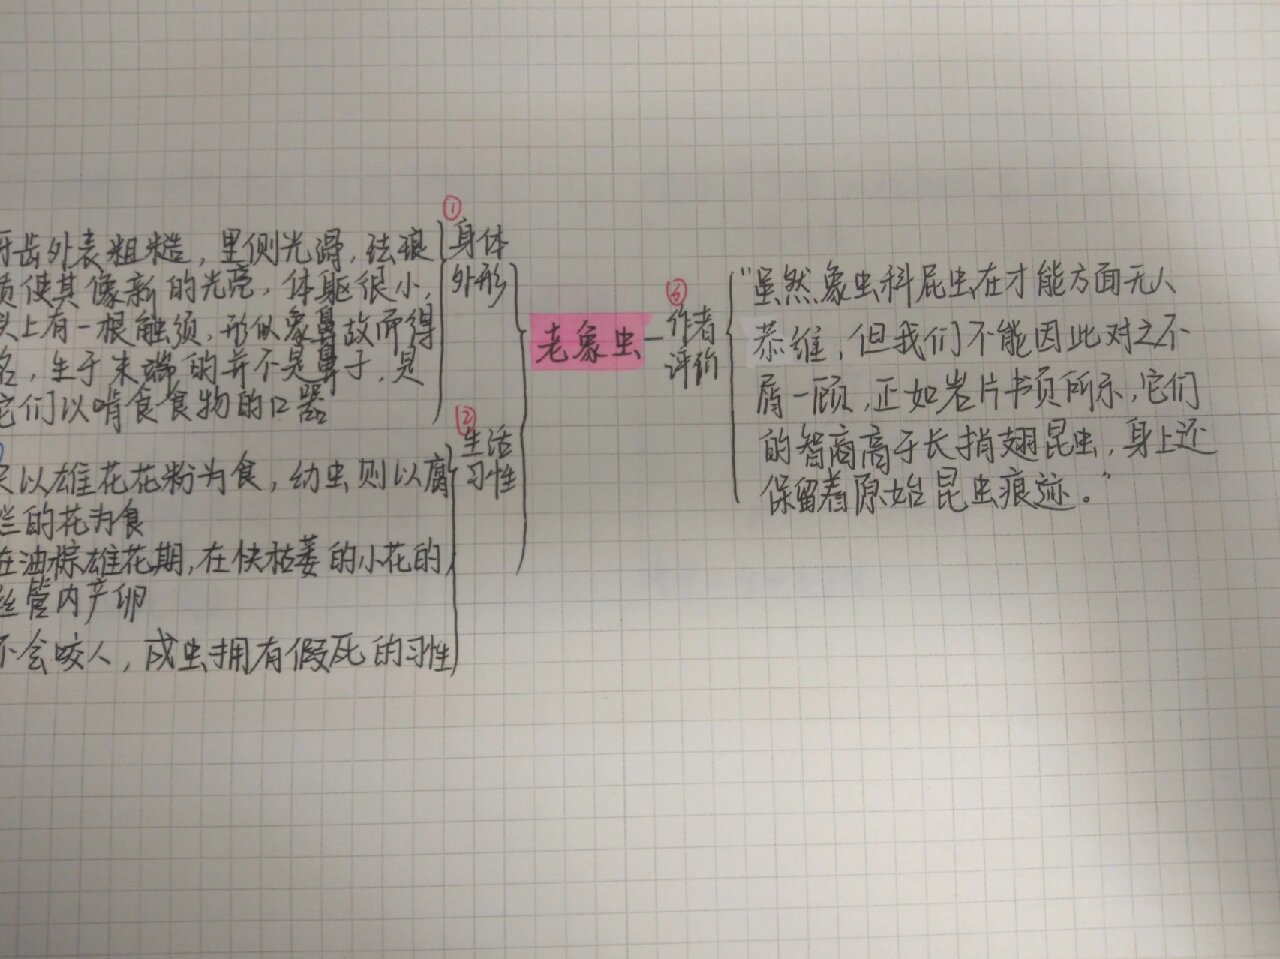 ①
身体
外形
牙齿外表粗糙，里侧光滑，珐琅
质使其像新的光亮，体躯很小，
头上有一根触须，形似象鼻故而得
名，生于末端的并不是鼻子，是
它们以啃食食物的口器
②
生活
习性
以雄花花粉为食，幼虫则以腐
烂的花为食
在油棕雄花期，在快枯萎的小花的
丝管内产卵
不会咬人，成虫拥有假死的习性
老象虫
③
作者
评价
"虽然象虫科屁虫在才能方面无人
恭维，但我们不能因此对之不
屑一顾，正如岩片书页所示，它们
的智商高于长捎翅昆虫，身上还
保留着原始昆虫痕迹。"